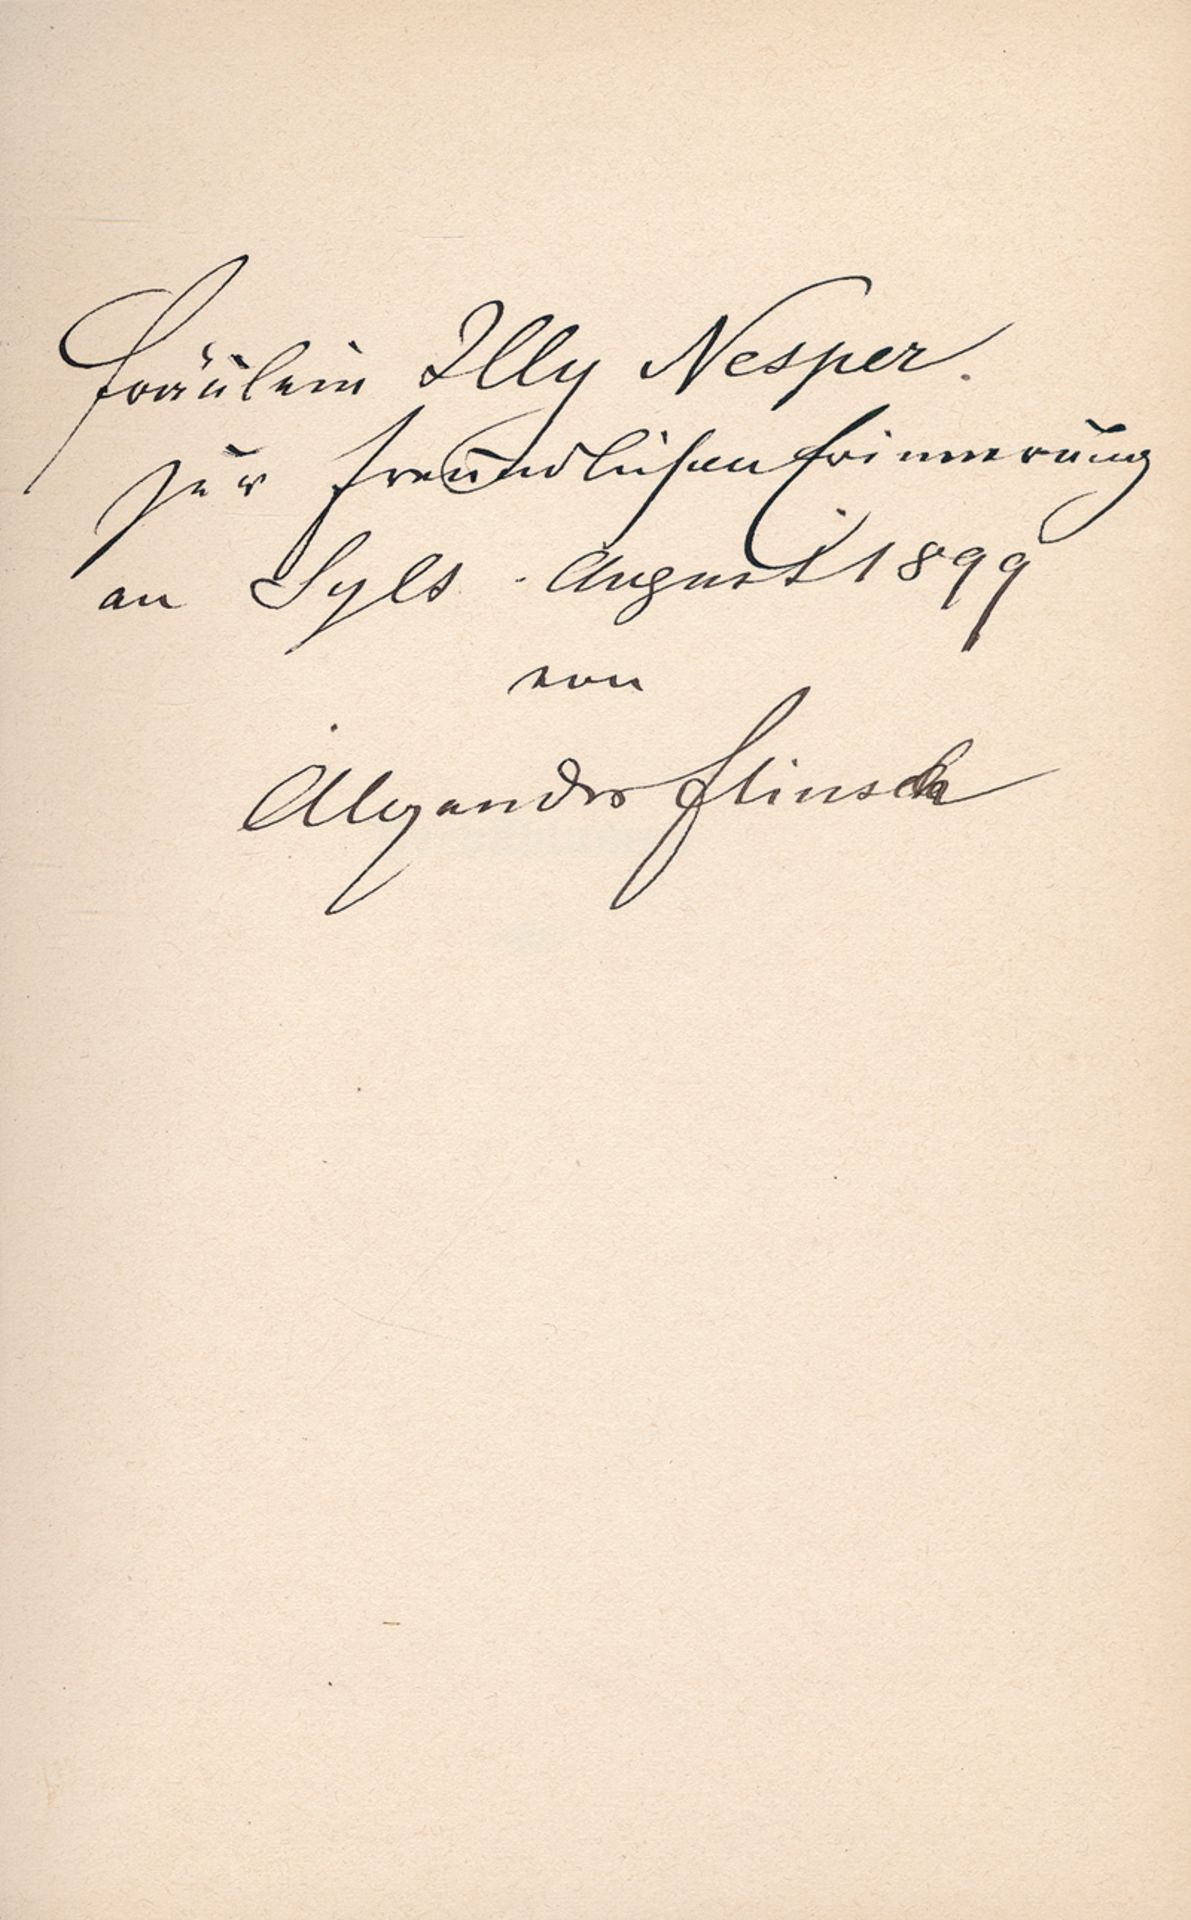 Fräulein Illy Nesper.
zur freundlichen Erinnerung
an Syls. August 1899
von
Alexander Flinsch